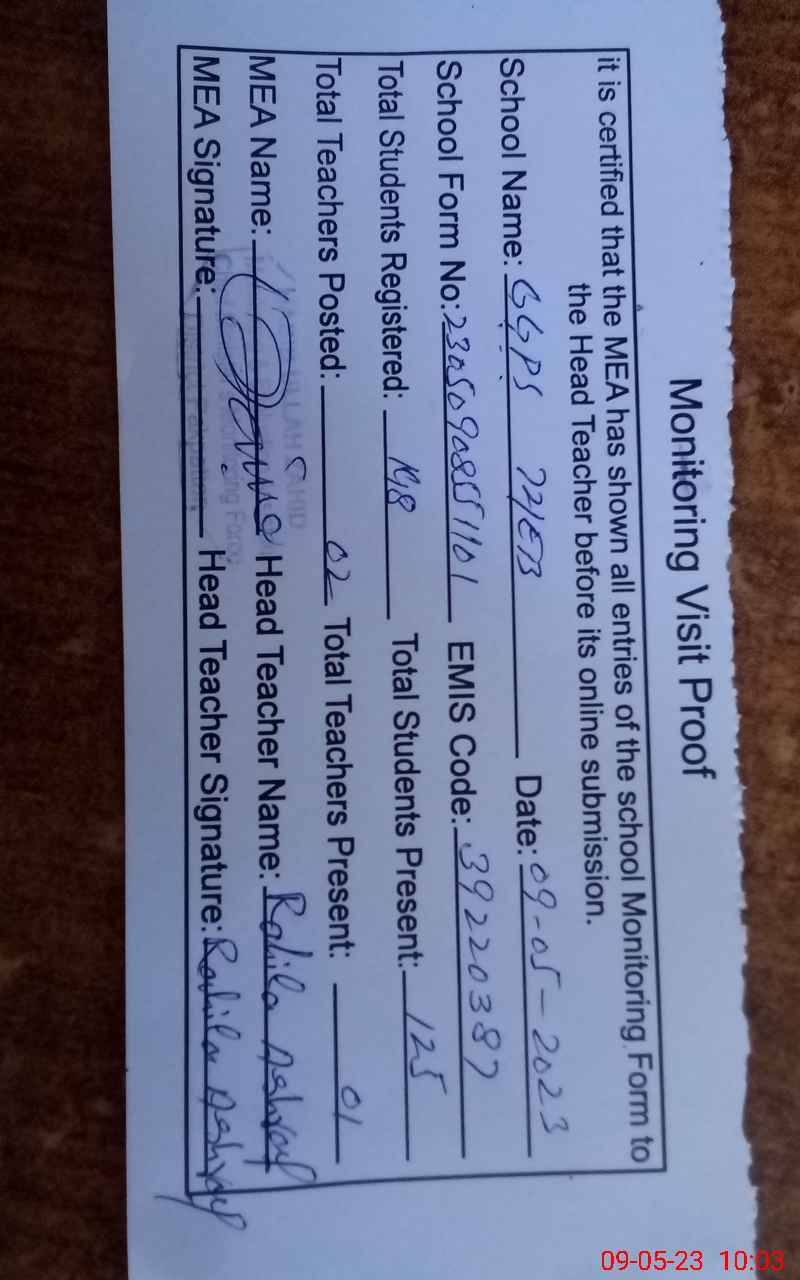 Monitoring Visit Proof
it is certified that the MEA has shown all entries of the school Monitoring Form to
the Head Teacher before its online submission.
School Name: GGPS 72/EB Date: 09-05-2023
School Form No: EMIS Code: 39220387
Total Students Registered: Total Students Present: 125
Total Teachers Posted: 02 Total Teachers Present: 01
MEA Name: Head Teacher Name: Rahila Ashraf
MEA Signature: Head Teacher Signature: Rahila Ashraf
09-05-23 10:03